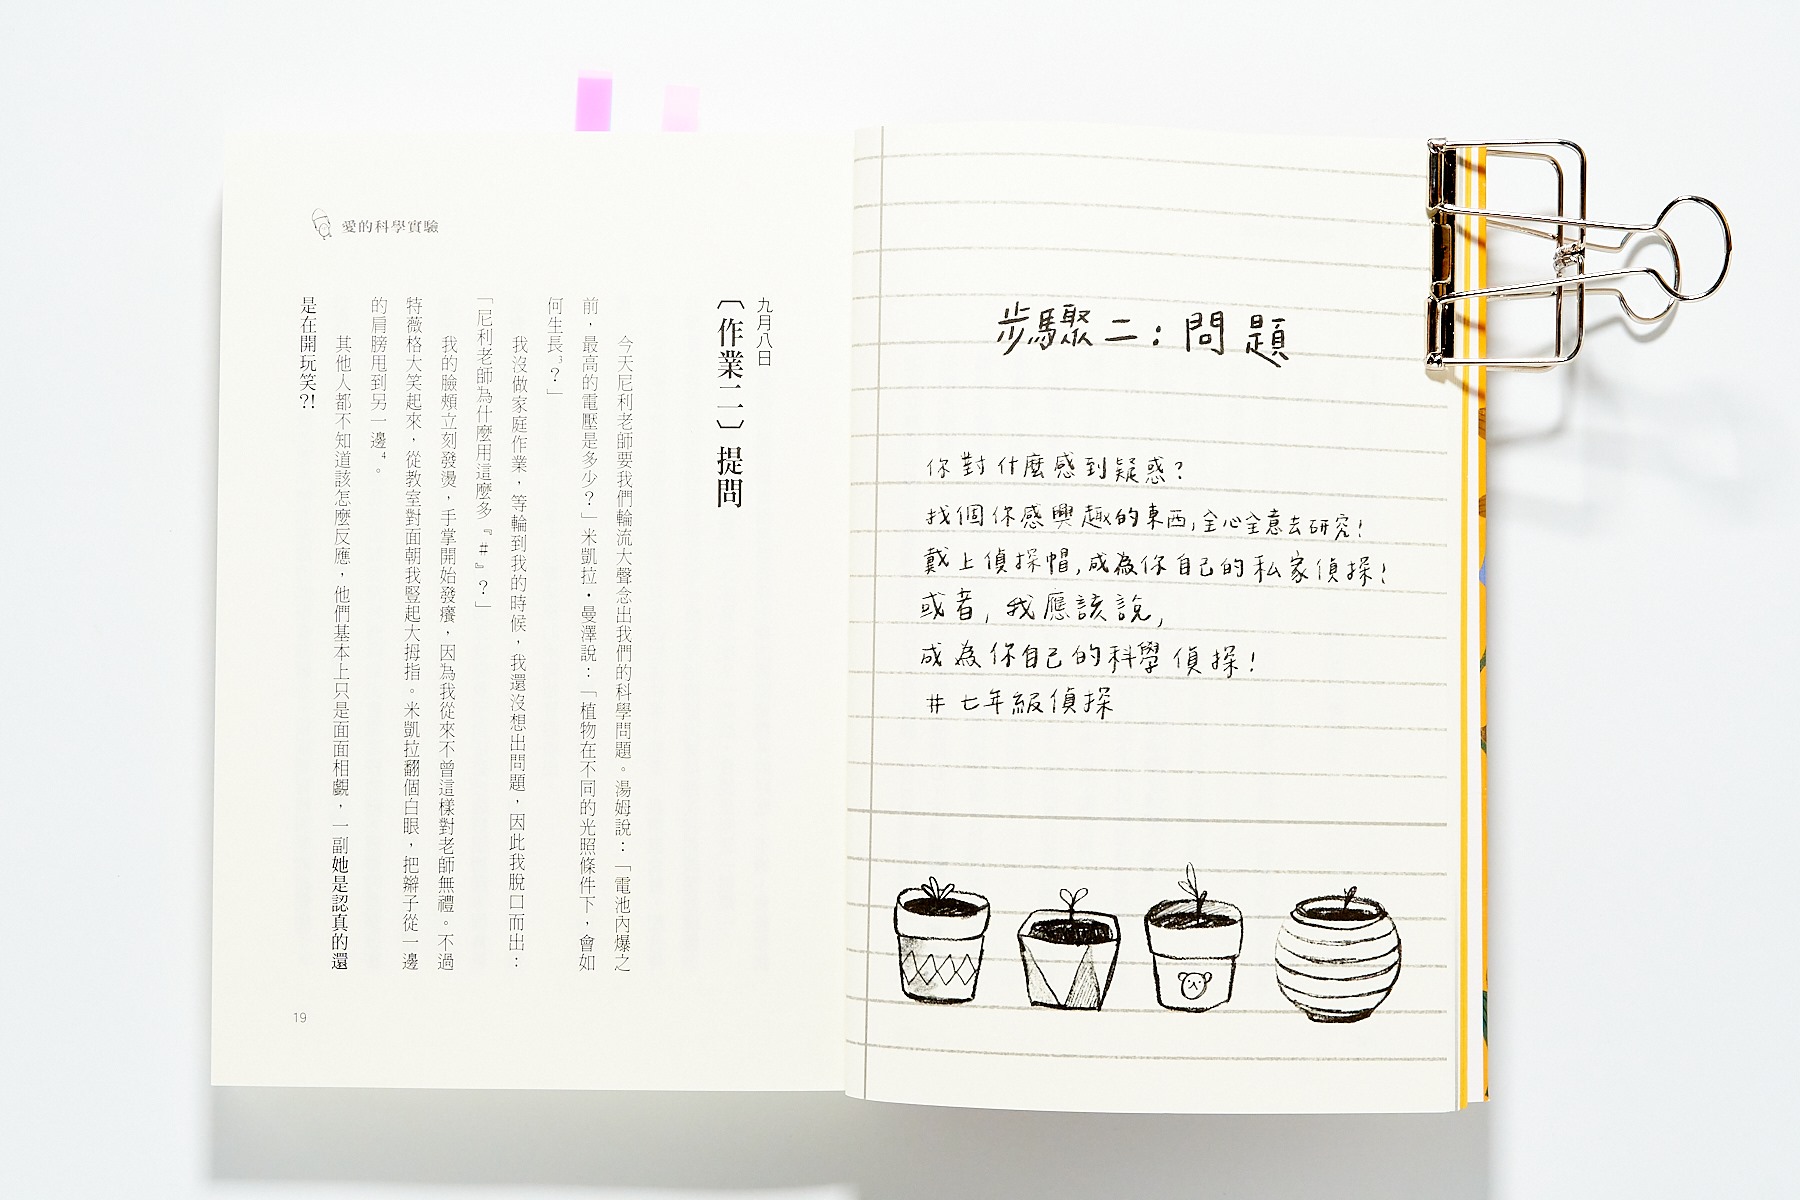 步驟二：問題
你對什麼感到疑惑？
找個你感興趣的東西，全心全意去研究！
戴上偵探帽，成為你自己的私家偵探！
或者，我應該說，
成為你自己的科學偵探！
#七年級偵探
愛的科學實驗
九月八日
〔作業二〕提問
今天尼利老師要我們輪流大聲念出我們的科學問題。湯姆說：「電池內爆之
前，最高的電壓是多少？」米凱拉・曼澤說：「植物在不同的光照條件下，會如
何生長3？」
我沒做家庭作業，等輪到我的時候，我還沒想出問題，因此我脫口而出：
「尼利老師為什麼用這麼多『#』？」
我的臉頰立刻發燙，手掌開始發癢，因為我從來不曾這樣對老師無禮。不過
特薇格大笑起來，從教室對面朝我豎起大拇指。米凱拉翻個白眼，把辮子從一邊
的肩膀甩到另一邊4。
其他人都不知道該怎麼反應，他們基本上只是面面相覷，一副她是認真的還
是在開玩笑?!
19